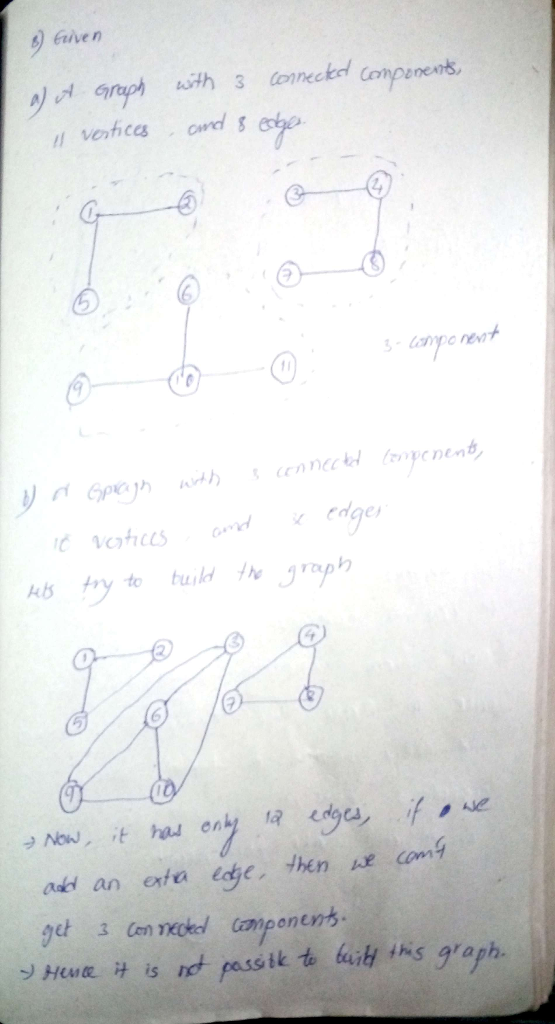 8) Given
a) A Graph with 3 connected components,
11 vertices, and 8 edges.
1 2 3 4
5 6 7 8
9 10 11
3-component
b) A Graph with 3 connected components,
vertices and edges
lets try to build the graph
1 2 3 4
5 6 7 8
9 10
→ Now, it has only 12 edges, if we
add an extra edge, then we can't
get 3 connected components.
→ Hence it is not possible to build this graph.